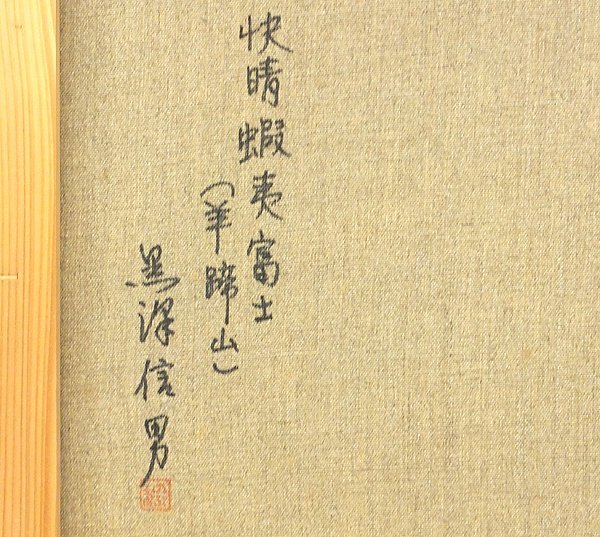 快晴蝦夷富士
(羊蹄山)
黒澤信男